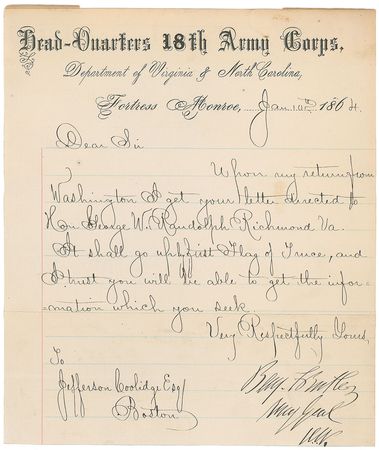 Head-Quarters 18th Army Corps,
Department of Virginia & North Carolina,
Fortress Monroe, Jan 10th 1864.
Dear Sir
Upon my return from
Washington I get your letter directed to
Hon George W. Randolph Richmond Va.
It shall go up first Flag of Truce, and
I trust you will be able to get the infor=
mation which you seek.
Very Respectfully Yours,
To
Jefferson Coolidge Esq
Boston
Benj. F Butler
Maj Genl